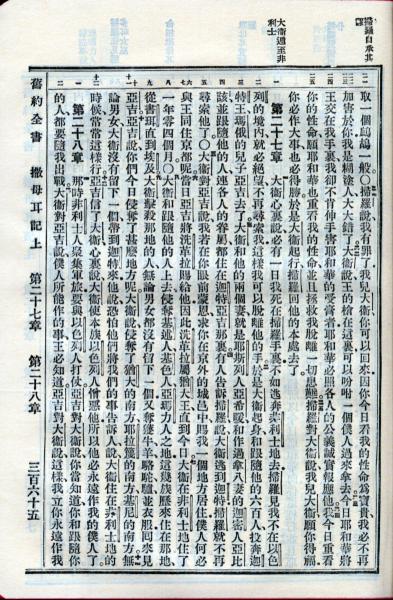 大衛遁至非
利士
取一個鷓鴣一般〇掃羅說我有罪了我兒大衛你可以回來因你今日看我的性命為寶貴我必不再
加害於你我是糊塗人大大錯了大衛說王的槍在這裏可以吩咐一個僕人過來拿去今日耶和華將
王交在我手裏我卻不肯伸手害耶和華的受膏者耶和華必照各人的公義誠實報應他我今日重看
你的性命願耶和華也重看我的性命並且拯救我脫離一切患難掃羅對大衛說我兒大衛願你得福
你必作大事也必得勝於是大衛起行掃羅回他的本處去了
第二十七章 大衛心裏說必有一日我死在掃羅手裏不如逃奔非利士地去掃羅見我不在以色
列的境內就必絕望不再尋索我這樣我可以脫離他的手於是大衛起身和跟隨他的六百人投奔迦
特王瑪俄的兒子亞吉去了大衛和他的兩個妻就是耶斯列人亞希暖和作過拿八妻的迦密人亞比
該並跟隨他的人連各人的眷屬都住在迦特亞吉那裏有人告訴掃羅說大衛逃到迦特掃羅就不再
尋索他了〇大衛對亞吉說我若在你眼前蒙恩求你在京外的城邑中賜我一個地方居住僕人何必
與王同住京都呢當日亞吉將洗革拉賜給他因此洗革拉屬猶大王直到今日大衛在非利士地住了
一年零四個月〇大衛和跟隨他的人上去侵奪基述人基色人亞瑪力人之地這幾族歷來住在那地
從書珥直到埃及大衛擊殺那地的人無論男女都沒有留下一個又奪獲牛羊駱駝驢並衣服回來見
亞吉亞吉說你們今日侵奪了甚麼地方呢大衛說侵奪了猶大的南方耶拉篾的南方基尼的南方無
論男女大衛沒有留下一個帶到迦特來他說恐怕他們將我們的事告訴人說大衛住在非利士地的
時候常常這樣行亞吉信了大衛心裏說大衛使本族以色列人憎惡他所以他必永遠作我的僕人了
第二十八章 那時非利士人聚集軍旅要與以色列人打仗亞吉對大衛說你當知道你和跟隨你
的人都要隨我出戰大衛對亞吉說僕人所能作的事王必知道亞吉對大衛說這樣我立你永遠作我
舊約全書 撒母耳記上 第二十七章 第二十八章 三百六十五